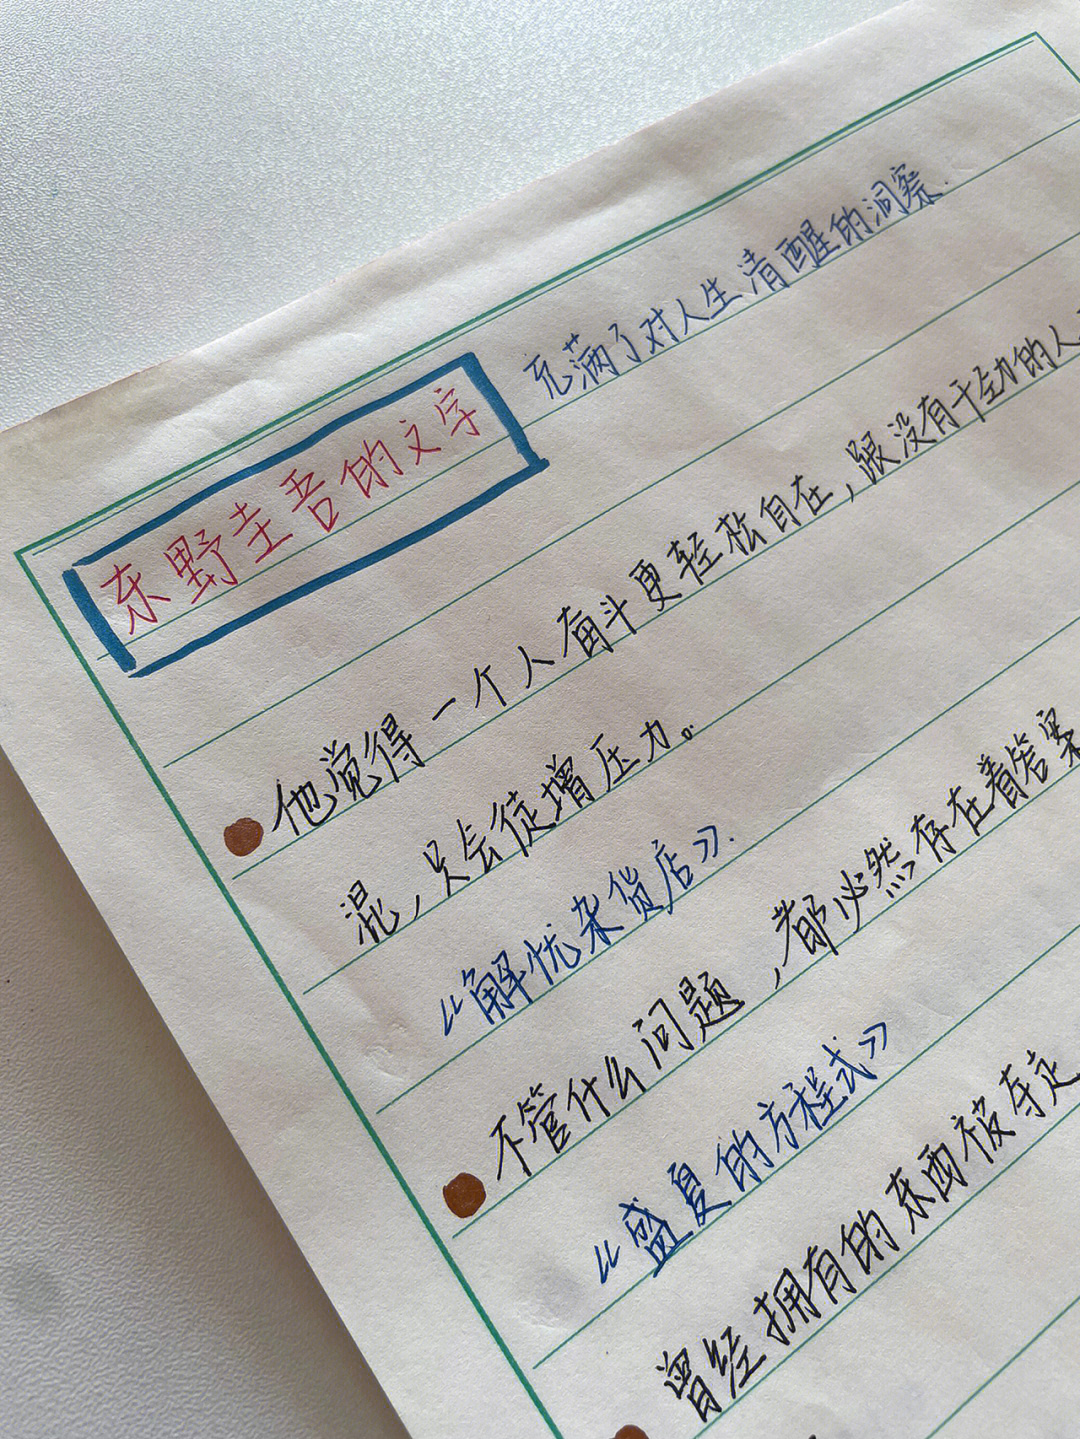 充满了对人生清醒的洞察.
东野圭吾的文字
他觉得一个人奋斗更轻松自在，跟没有干劲的人
混，只会徒增压力。
《解忧杂货店》.
不管什么问题，都必然存在着答案
《盛夏的方程式》
曾经拥有的东西被夺走